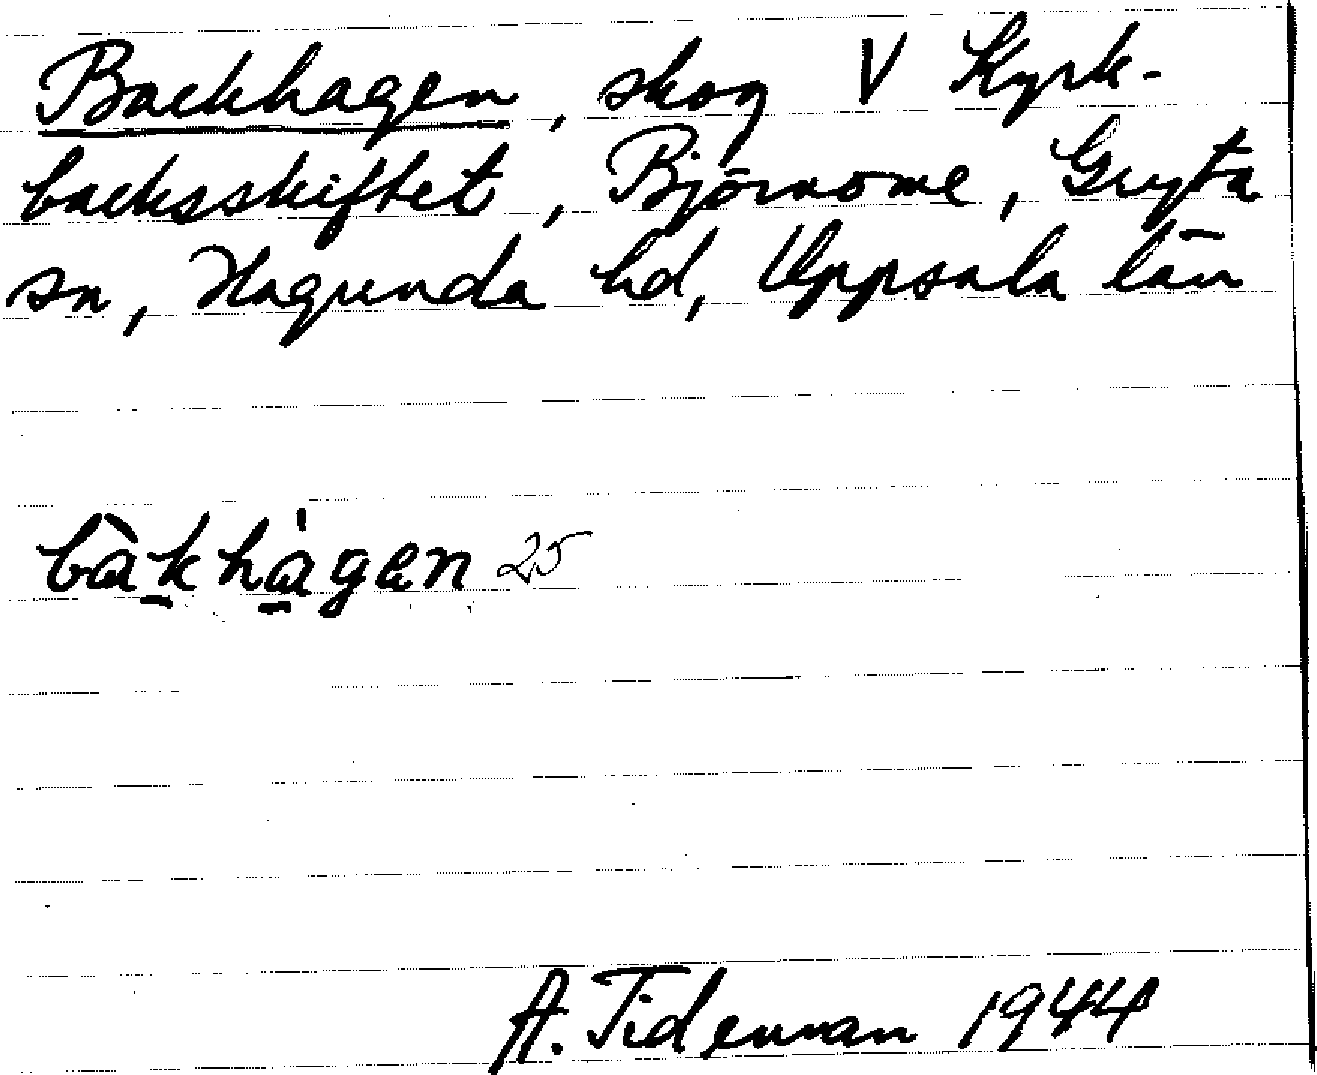 Backhagen, skog V Kyrk-
backsskiftet, Björnome, Gryta
sn, Hagunda hd, Uppsala län
bàkhàgen 25
A. Tideman 1944